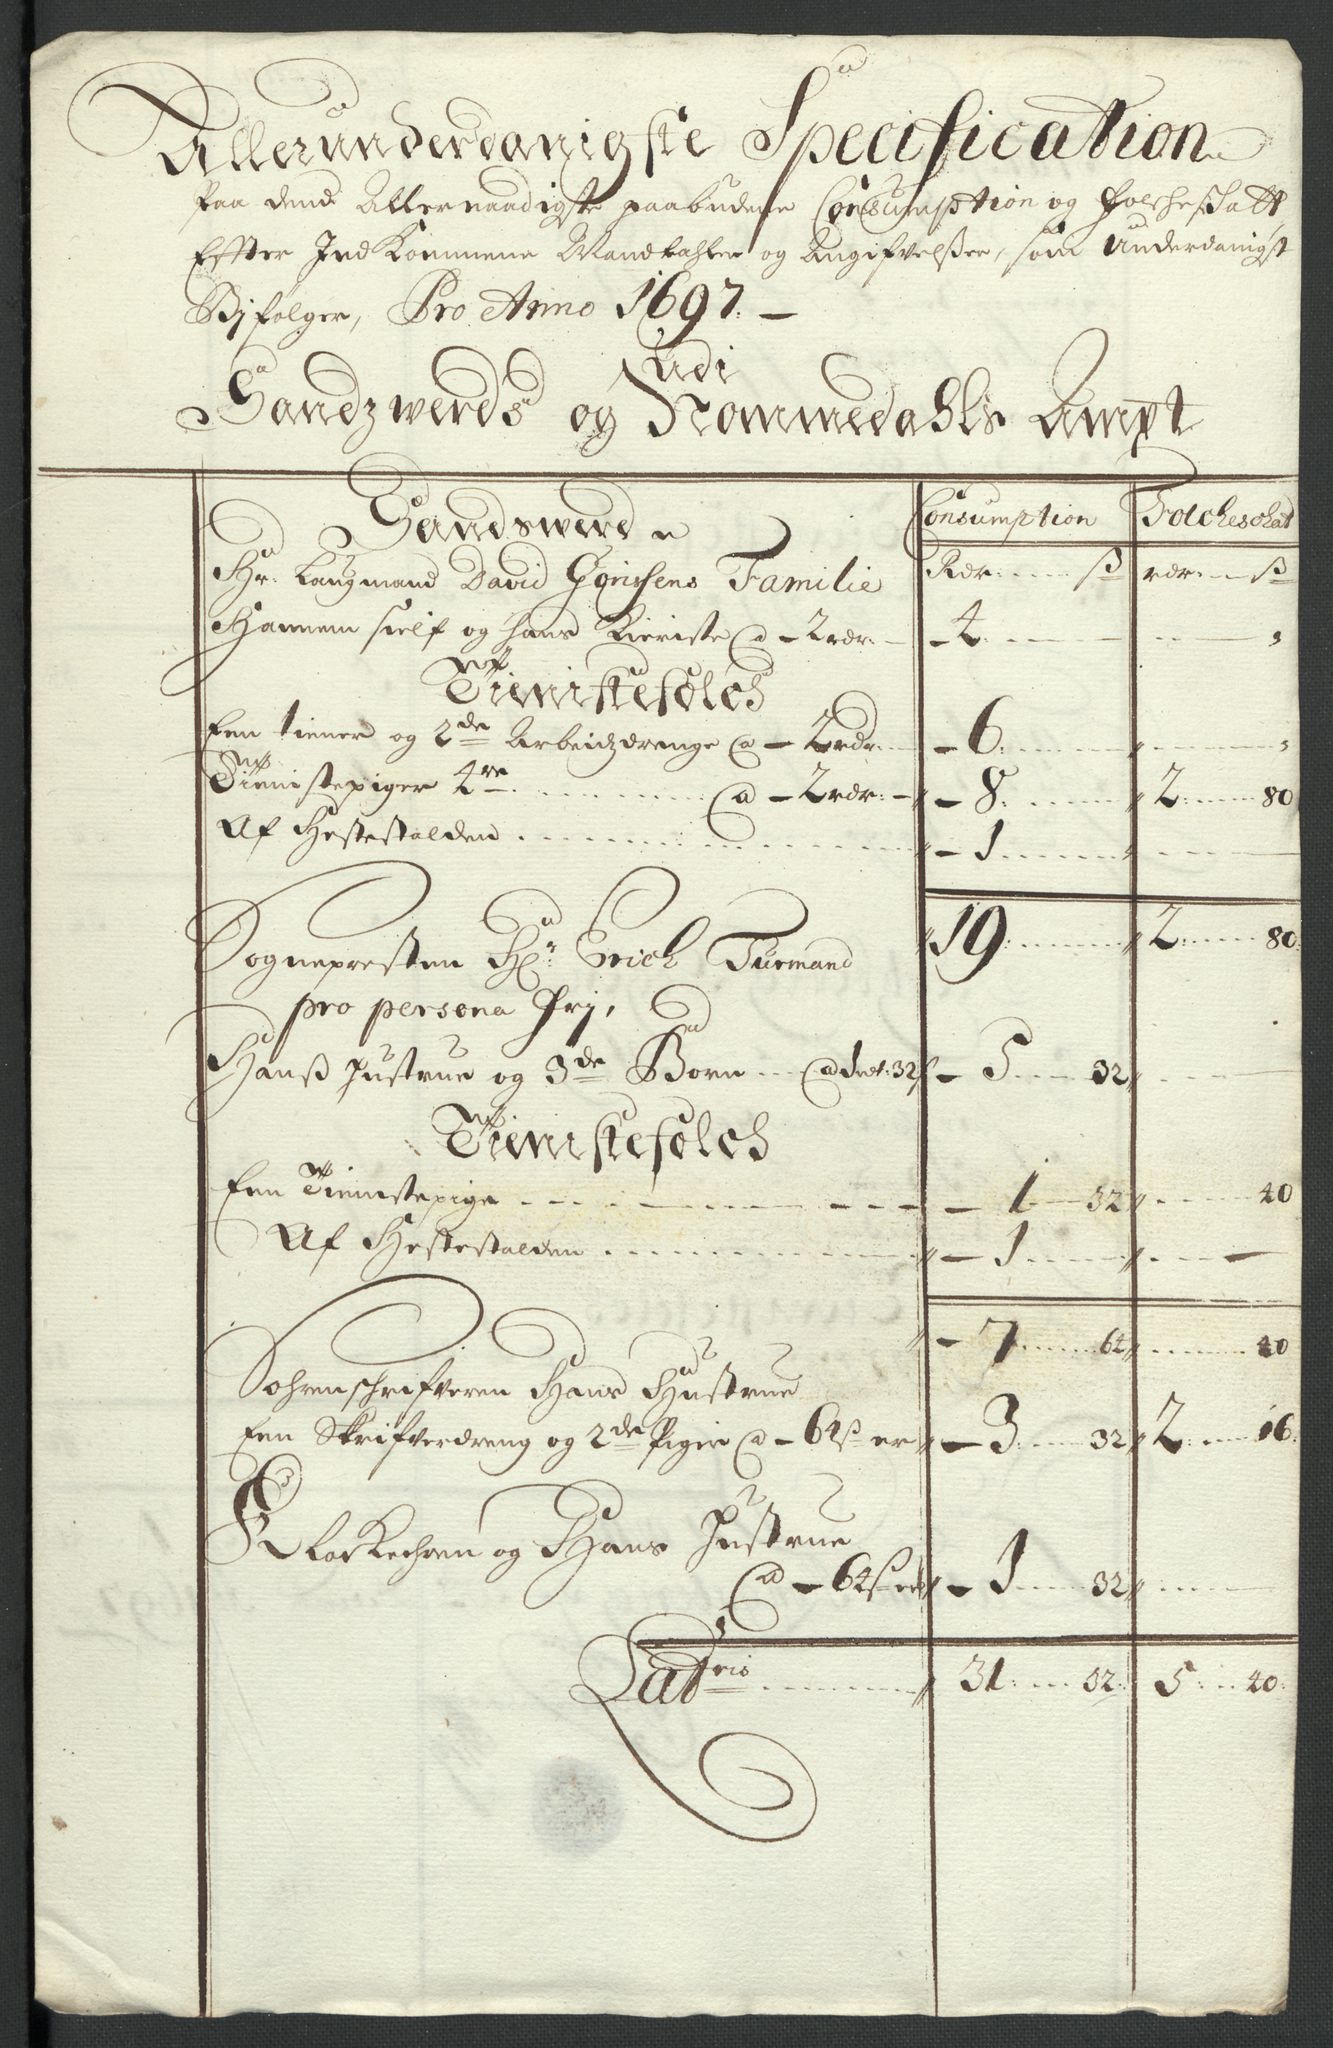 Allerunderdanigste Specification
Paa dend Allernaadigste paabudene Consumption og Folcheskatt,
Effter Ind Kommene Mandtahler og Angifvelßer, som Underdanigst
Bifølger, Pro Anno 1697. —
Udi
Sandzwerds og Nommedahls Ampt
Sandswerd
Consumption Folcheschat
Hr. Laugmand David Familie Rdr ß rdr ß
Hannem self og hans Kieriste a 2 rdr: 4
Tieniste folch
Een tiener og 2de Arbeidzdrenge a 2 rdr: 6
Tienistepiger 4re a 2 rdr: 8 2 80
Af Hestestalden 1
19 2 80
Sognepresten Hr: Erich Turmand
pro persona frj,
Hanß Hustrue og 3de Børn a 1 rd: 32 ß 5 32
Tieniste folch
Een Tienistepige 1 32 40
Af Hestestalden 1
7 64 40
Sohrenschrifveren Hans Hustrue
Een Skrifverdreng og 2de Piger a 64 ß er 3 32 2 16
Klockeren og Hans Hustrue
a 64 ß er 1 32
Lat eris 31 32 5 40